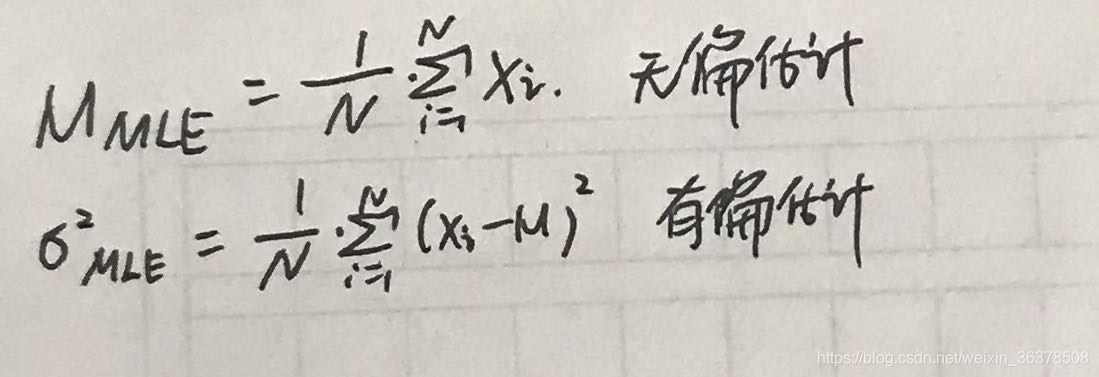 μ_MLE = 1/N · ∑_{i=1}^{N} x_i. 无偏估计
σ²_MLE = 1/N · ∑_{i=1}^{N} (x_i - μ)² 有偏估计
https://blog.csdn.net/weixin_36378508